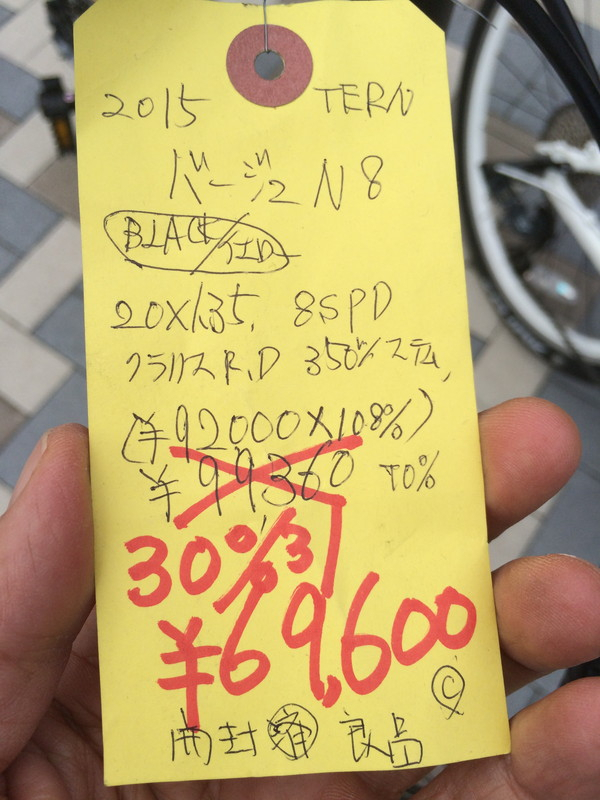 2015 TERN
バージュ N8
BLACK/
20X1.35, 8SPD
クラリスR.D 350%ステム,
(¥92000X108%)
¥99360
30%
¥69,600
C
開封 済 良品